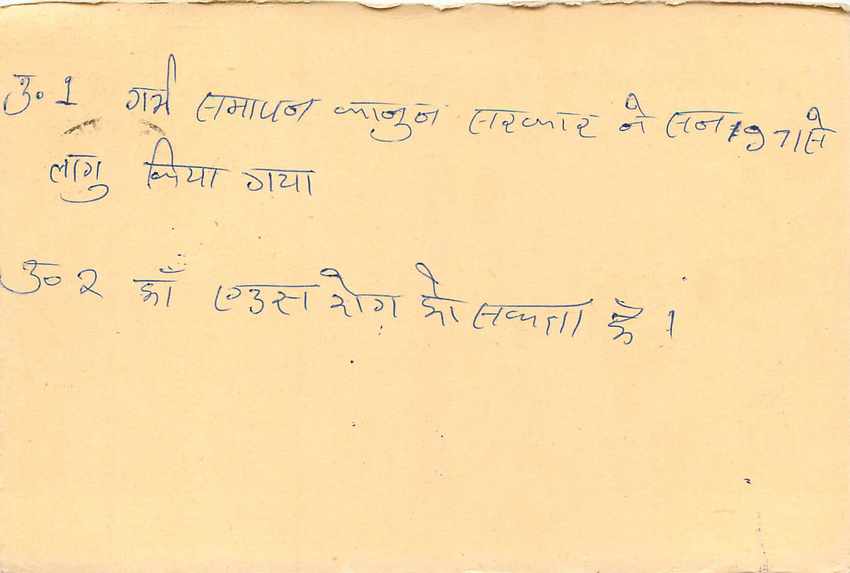 उ॰ 1 गर्भ समापन कानुन सरकार ने सन 1971 से
लागु किया गया
उ॰ २ हाँ एडस रोग हो सकता है।